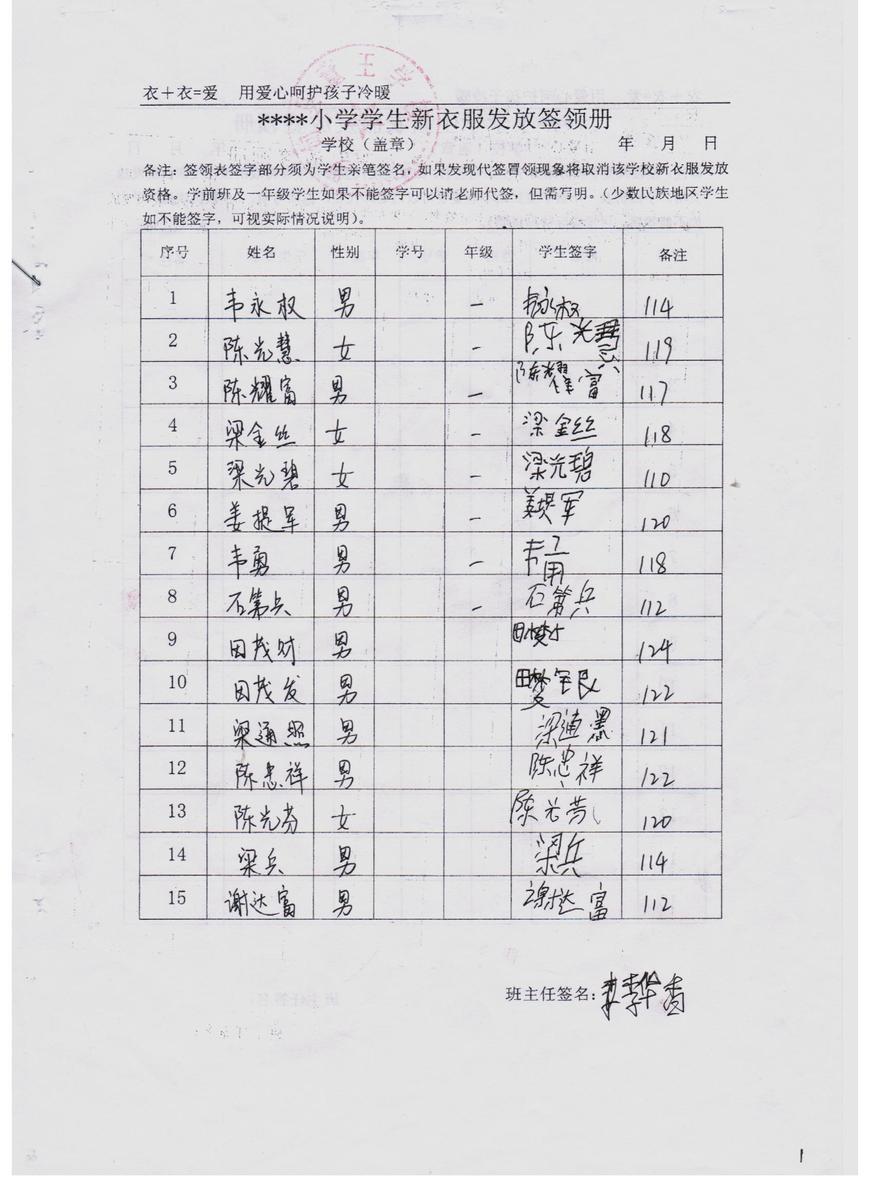 衣＋衣=爱 用爱心呵护孩子冷暖
****小学学生新衣服发放签领册
学校（盖章） 年 月 日
备注：签领表签字部分须为学生亲笔签名，如果发现代签冒领现象将取消该学校新衣服发放
资格。学前班及一年级学生如果不能签字可以请老师代签，但需写明。（少数民族地区学生
如不能签字，可视实际情况说明）。
序号 姓名 性别 学号 年级 学生签字 备注
1 韦永权 男 一 韦永权 114
2 陈光慧 女 一 陈光慧 119
3 陈耀富 男 一 陈耀富 117
4 梁金丝 女 一 梁金丝 118
5 梁光碧 女 一 梁光碧 110
6 姜提军 男 一 姜提军 120
7 韦勇 男 一 韦勇 118
8 石第兵 男 一 石第兵 112
9 田茂财 男 124
10 田茂发 男 122
11 梁通照 男 梁通 121
12 陈忠祥 男 陈忠祥 122
13 陈光芬 女 陈光芬 120
14 梁兵 男 梁兵 114
15 谢达富 男 谢达富 112
班主任签名：
1